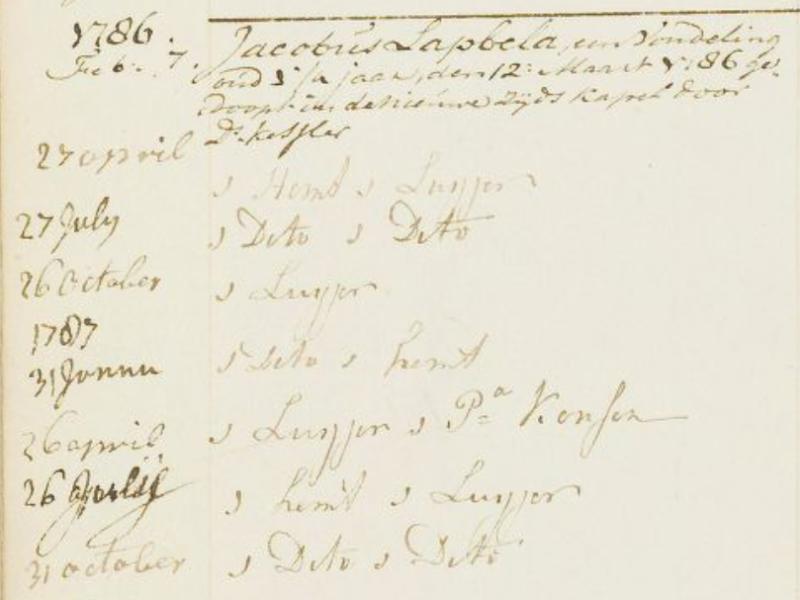 1786.
Feb: 7. Jacobus Lapbela, een Vondeling
oud 5 1/2 jaar, den 12: Maart 1786 ge-
doopt in de nieuwe Zijds Kapel door
Ds. Kessler
27 april 1 Hemt 1 Luyjer
27 July 1 Dito 1 Dito
26 October 1 Luyjer
1787
31 Jannu 1 Dito 1 hemt
26 april 1 Luyjer 1 Pa Konsen
26 Julij 1 hemt 1 Luyjer
31 october 1 Dito 1 Dito